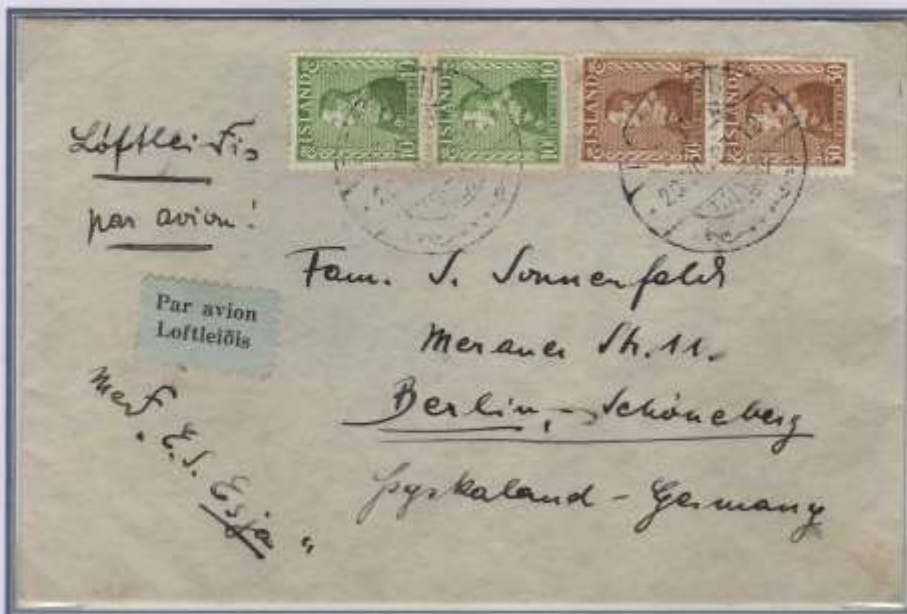 ÍSLAND 10
ÍSLAND 10
ÍSLAND 50
ÍSLAND 50
Loftleiðis
par avion!
Par avion
Loftleiðis
Fam. S. Sonnenfeld
Meraner Str. 11.
Berlin,-Schöneberg
Þyskaland - Germany
E.S. Esja"